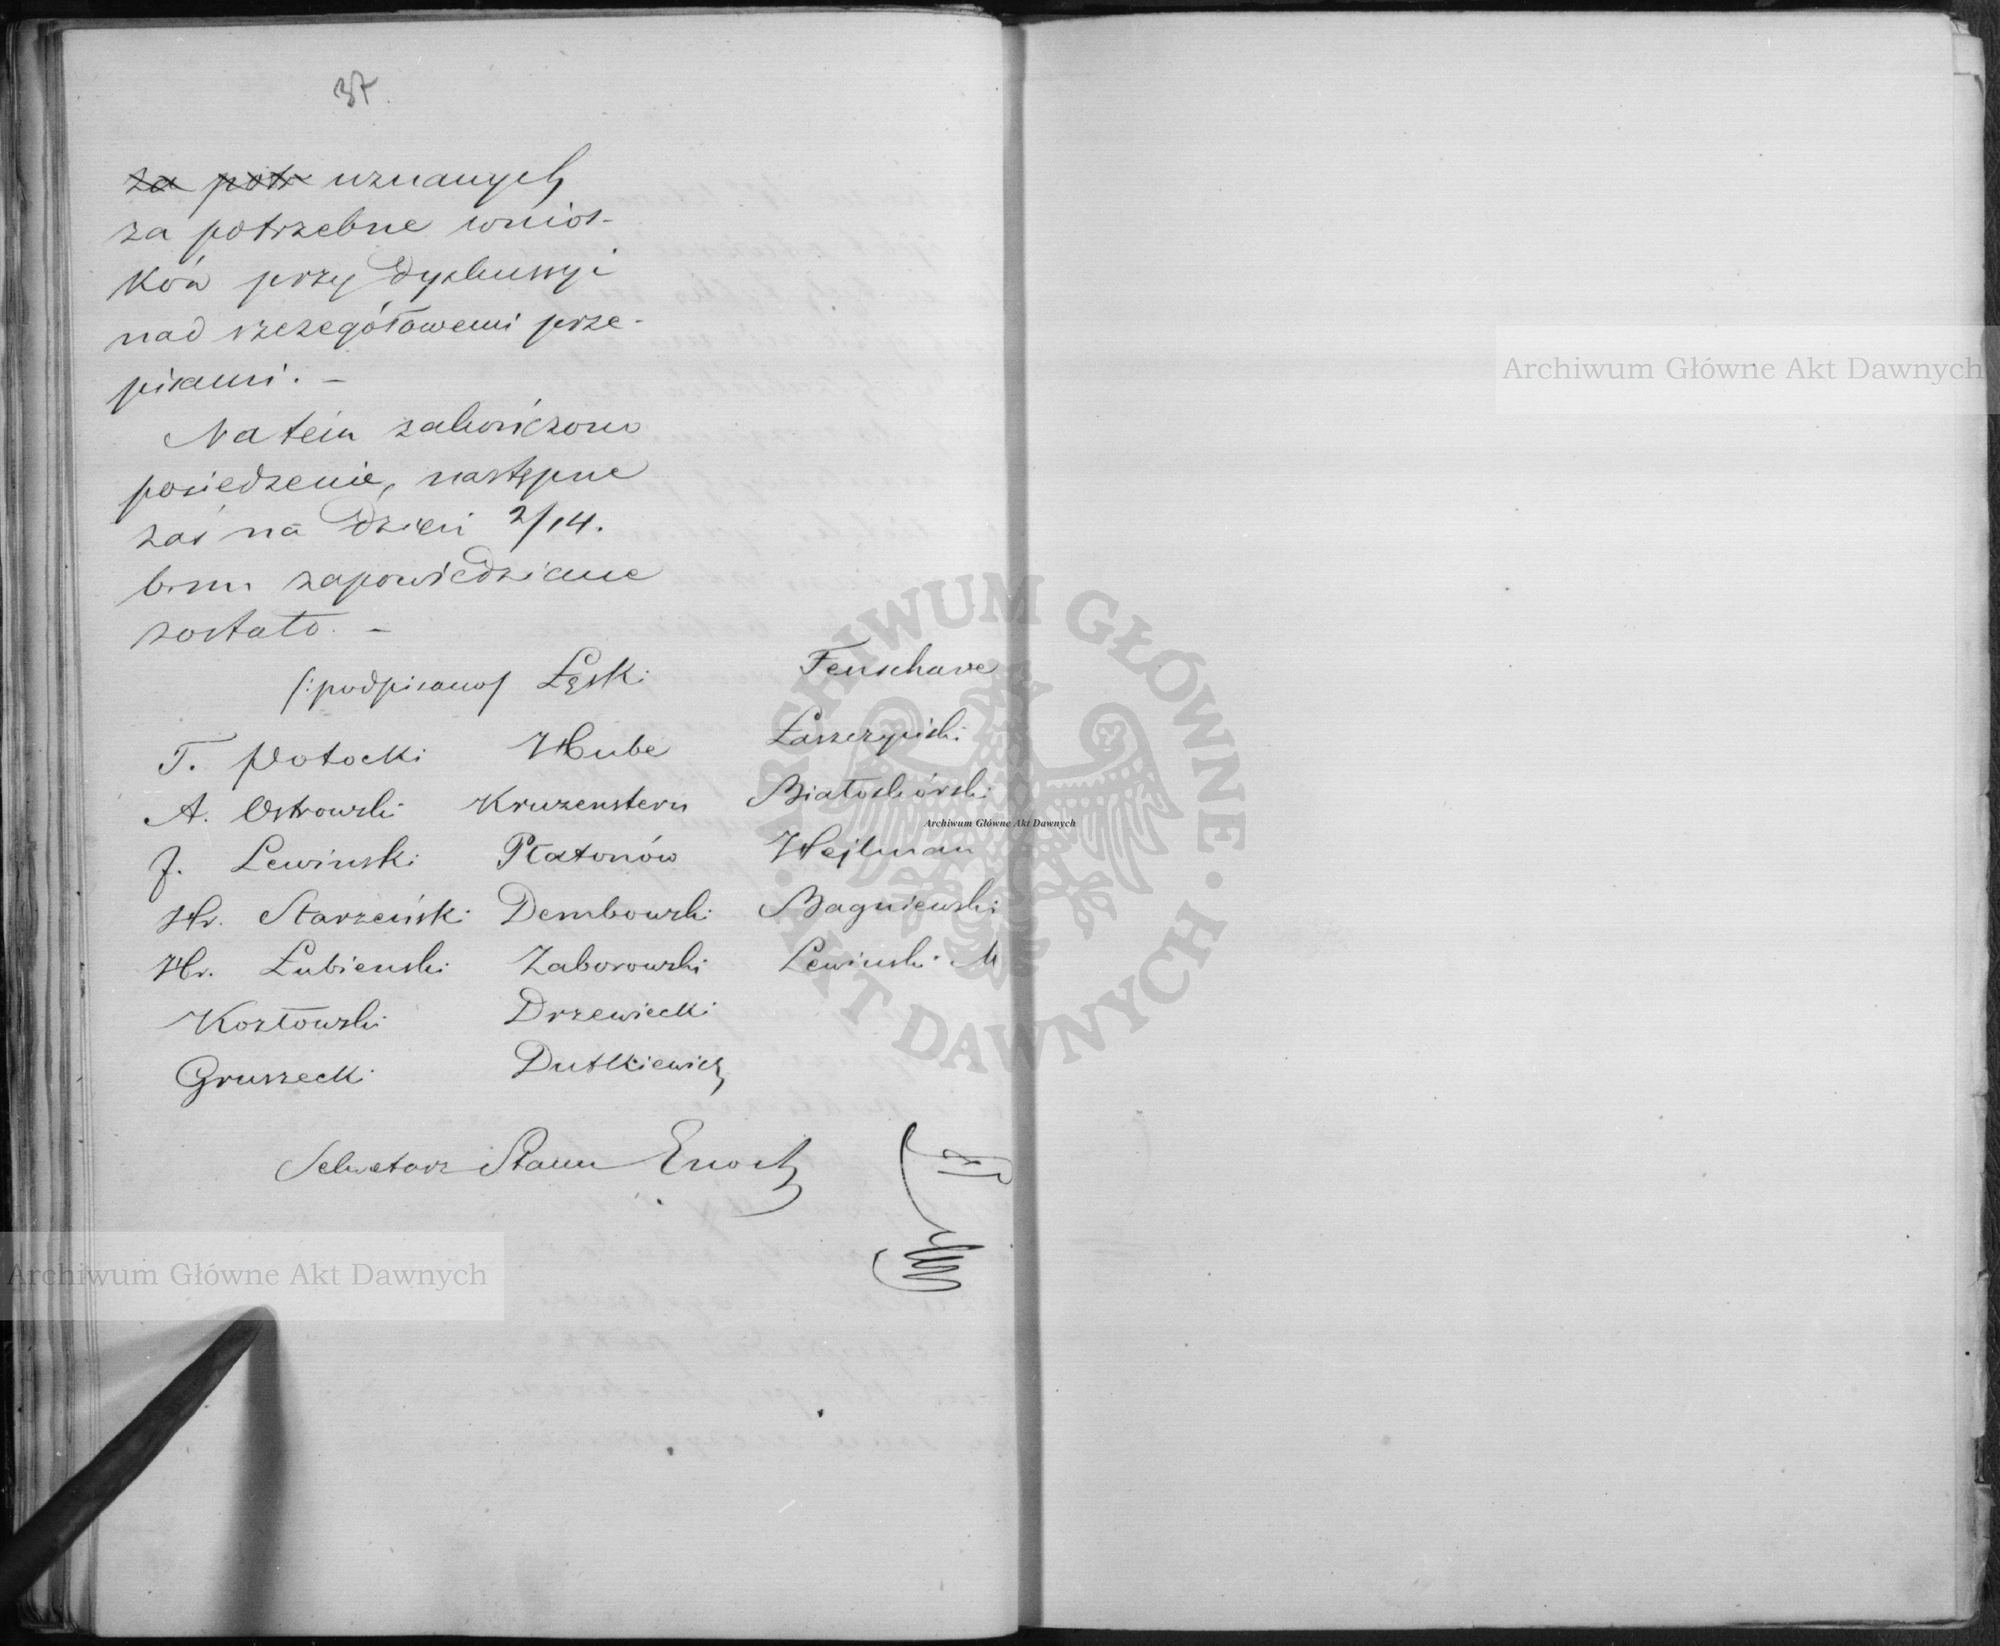 37.
za potr uznanych
za potrzebne wnios-
ków przy dyskussyi
nad szczegółowemi prze-
pisami. -
Na tém zakończono
posiedzenie, następne
zaś na dzień 2/14.
b.m. zapowiedziane
zostało. -
/:podpisano/ Łęski Fenschave
T. Potocki Hube Łaszczyński
A. Ostrowski Kruzenstern Białoskórski
J. Lewiński Płatonów Hejlman
Hr. Starzeński Dembowski Bagniewski
Hr. Łubieński Zaborowski Lewiński M
Kozłowski Drzewiecki
Gruszecki Dutkiewicz
Sekretarz Stanu Enoch
Archiwum Główne Akt Dawnych
Archiwum Główne Akt Dawnych
Archiwum Główne Akt Dawnych
ARCHIWUM GŁÓWNE · AKT DAWNYCH ·